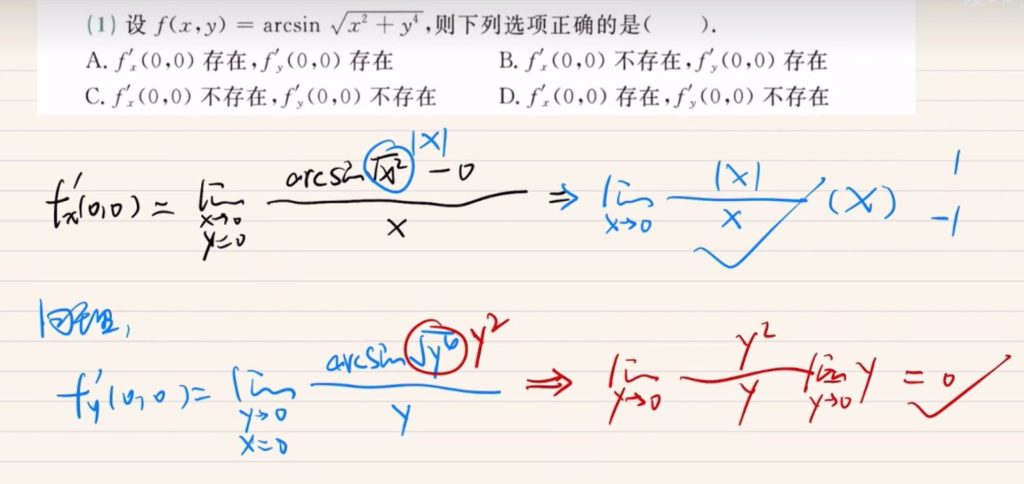 (1) 设 f(x,y) = arcsin √(x² + y⁴),则下列选项正确的是(  ).
A. f′ₓ(0,0) 存在,f′ᵧ(0,0) 存在
B. f′ₓ(0,0) 不存在,f′ᵧ(0,0) 存在
C. f′ₓ(0,0) 不存在,f′ᵧ(0,0) 不存在
D. f′ₓ(0,0) 存在,f′ᵧ(0,0) 不存在
|x|
f′ₓ(0,0) = lim_{x→0, y=0} (arcsin √x² − 0)/x ⇒ lim_{x→0} |x|/x (X) 1 −1
同理,
f′ᵧ(0,0) = lim_{y→0, x=0} arcsin √y⁶ y² / y ⇒ lim_{y→0} y²/y lim_{y→0} y = 0